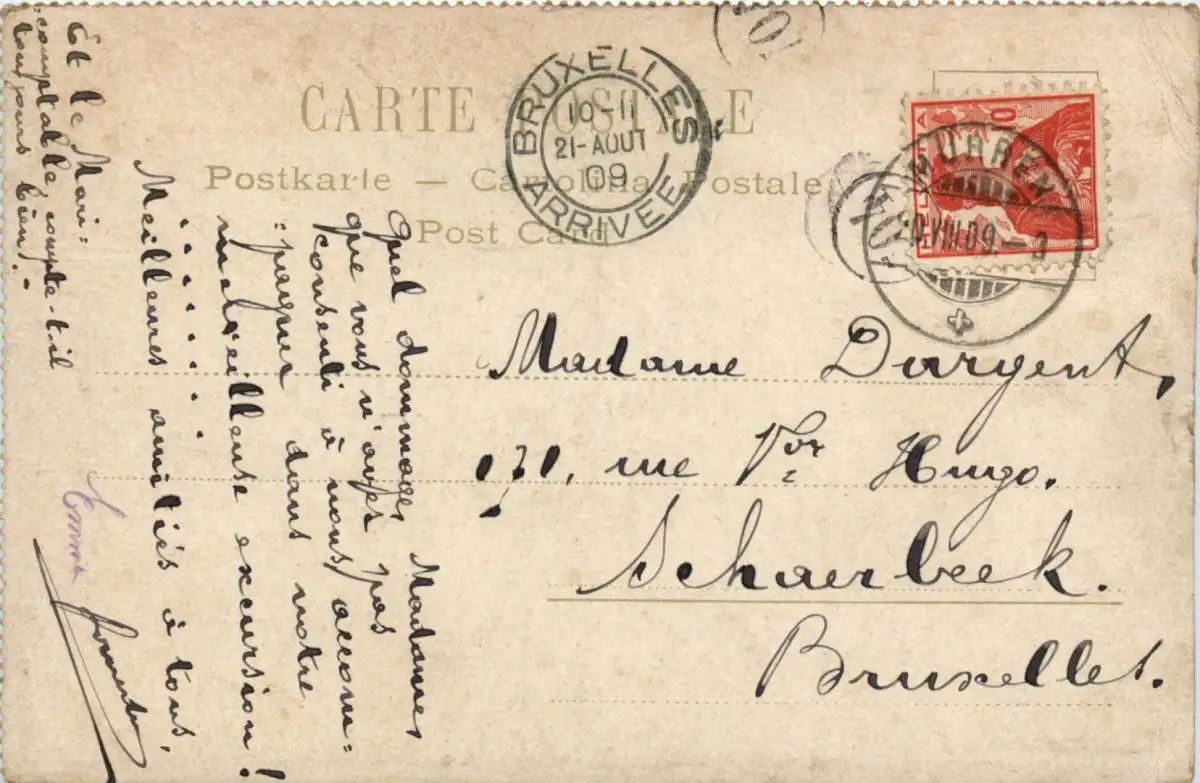 CARTE POSTALE
Postkarte — Cartolina Postale
Post Card
BRUXELLES
10-11
21-AOUT
09
ARRIVEE
HELVETIA
MÜRREN
20.VIII.09.
Madame Dargent,
171, rue Vor Hugo.
Schaerbeek.
Bruxelles.
Quel dommage, Madame,
que vous n'ayez pas
consenti à nous accom=
=pagner dans notre
merveilleuse excursion!
. . . . . . .
Meilleures amitiés à tous,
Emma
Et le Mari=
=comptable, compte-t-il
toujours bien?